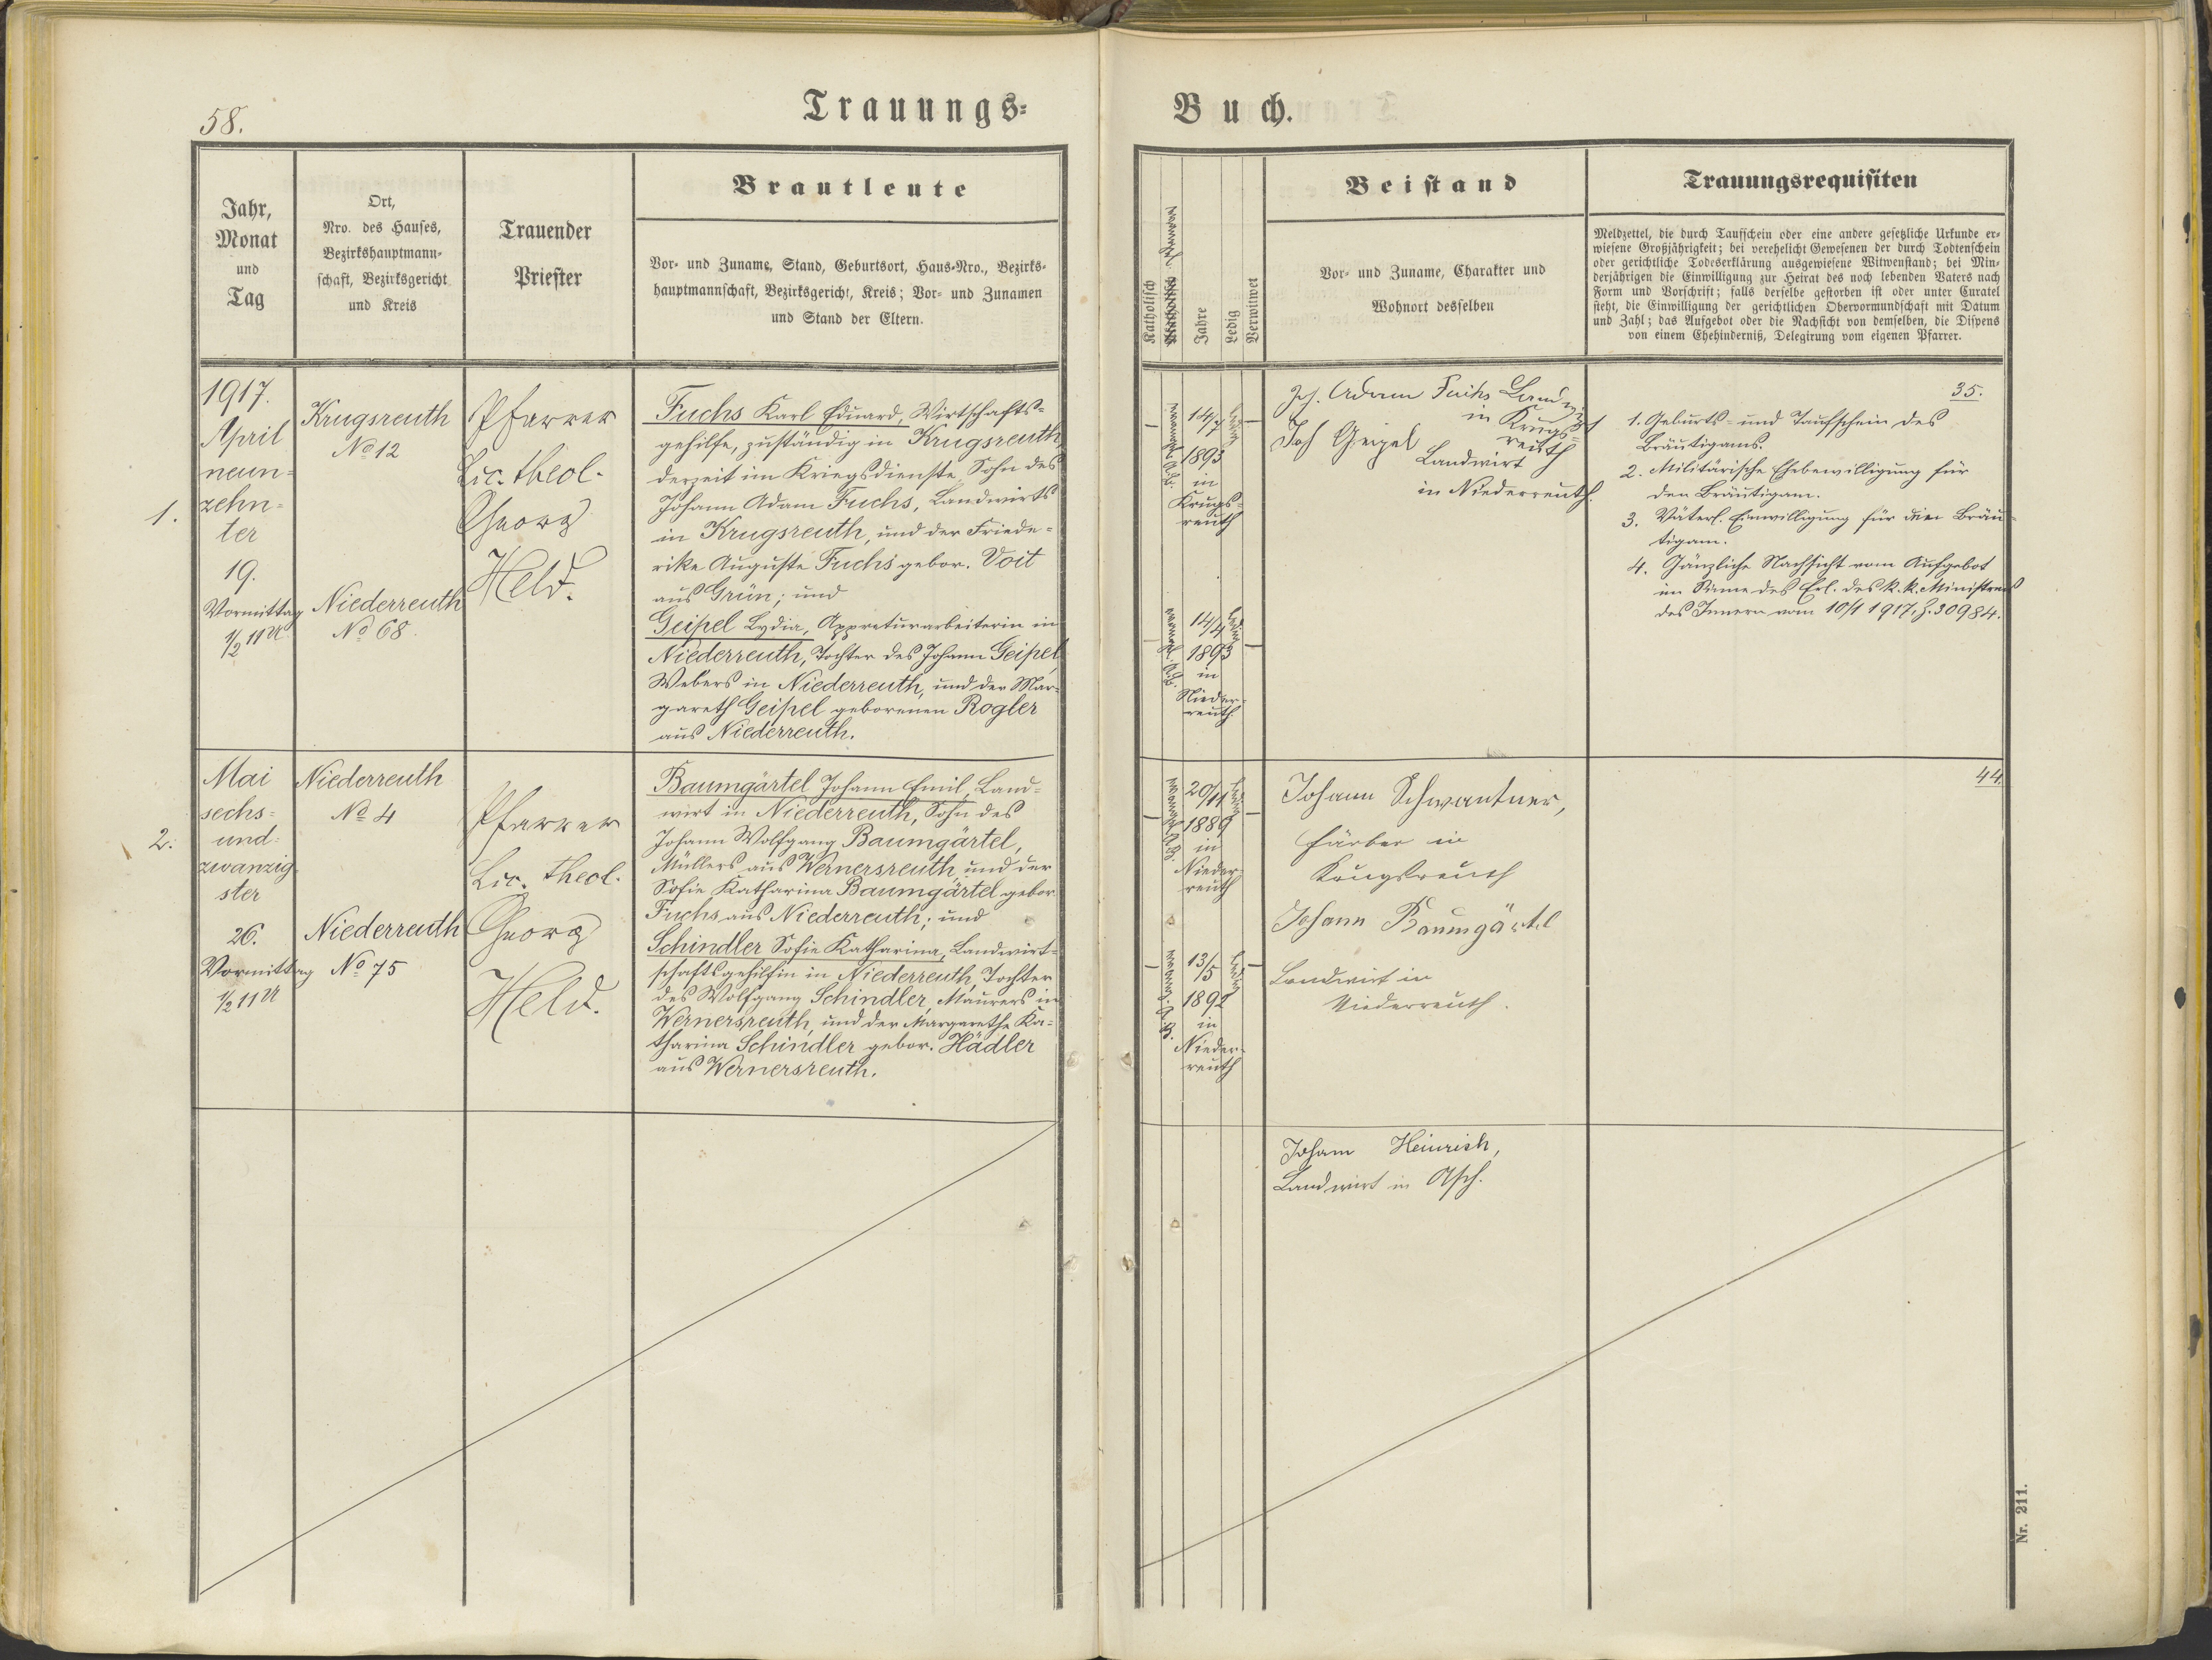 58.
Trauungs=
Buch.
Jahr,
Monat
und
Tag
Ort,
Nro. des Hauses,
Bezirkshauptmann-
schaft, Bezirksgericht
und Kreis
Trauender
Priester
Brautleute
Vor- und Zuname, Stand, Geburtsort, Haus-Nro., Bezirks-
hauptmannschaft, Bezirksgericht, Kreis; Vor- und Zunamen
und Stand der Eltern.
Katholisch
Jahre
Ledig
Verwitwet
Beistand
Vor- und Zuname, Charakter und
Wohnort desselben
Trauungsrequisiten
Meldzettel, die durch Taufschein oder eine andere gesetzliche Urkunde er-
wiesene Großjährigkeit; bei verehelicht Gewesenen der durch Todtenschein
oder gerichtliche Todeserklärung ausgewiesene Witwenstand; bei Min-
derjährigen die Einwilligung zur Heirat des noch lebenden Vaters nach
Form und Vorschrift; falls derselbe gestorben ist oder unter Curatel
steht, die Einwilligung der gerichtlichen Obervormundschaft mit Datum
und Zahl; das Aufgebot oder die Nachsicht von demselben, die Dispens
von einem Ehehinderniß, Delegirung vom eigenen Pfarrer.
1.
1917.
April
neun=
zehn=
ter
19.
Vormittag
1/2 11 U
Krugsreuth
No 12
Niederreuth
No 68.
Pfarrer
Lic. theol.
Georg
Held.
Fuchs Karl Eduard, Wirtschafts=
gehilfe, zuständig in Krugsreuth
derzeit im Kriegsdienste, Sohn des
Johann Adam Fuchs, Landwirts
in Krugsreuth, und der Friede=
rike Auguste Fuchs gebor. Voit
aus Grün; und
Geipel Lydia, Appreturarbeiterin in
Niederreuth, Tochter des Johann Geipel,
Webers in Niederreuth, und der Mar=
gareth Geipel geborenen Rogler
aus Niederreuth.
14/7
1893
in
Krugs=
reuth
14/4
1893
in
Nieder=
reuth
Joh. Adam Fuchs Landwirt
in Krugs=
reuth
Joh Geipel
Landwirt
in Niederreuth.
35.
1. Geburts- und Taufschein des
Bräutigams.
2. Militärische Ehebewilligung für
den Bräutigam.
3. Väterl. Einwilligung für den Bräu=
tigam.
4. Gänzliche Nachsicht vom Aufgebot
im Sinne des Erl. des k. k. Ministers
des Innern vom 10/1 1917, Z. 30984.
2.
Mai
sechs=
und=
zwanzig
ster
26.
Vormittag
1/2 11 U
Niederreuth
No 4
Niederreuth
No 75
Pfarrer
Lic. theol.
Georg
Held.
Baumgärtel Johann Emil, Land=
wirt in Niederreuth, Sohn des
Johann Wolfgang Baumgärtel,
Müllers aus Wernersreuth, und der
Sofie Katharina Baumgärtel gebor.
Fuchs aus Niederreuth; und
Schindler Sofie Katharina, Landwirt=
schaftsgehilfin in Niederreuth, Tochter
des Wolfgang Schindler, Maurers in
Wernersreuth, und der Margarethe Ka=
tharina Schindler gebor. Hädler
aus Wernersreuth.
20/11
1889
in
Nieder=
reuth
13/5
1892
in
Nieder=
reuth
Johann Schwantner,
Färber in
Krugsreuth
Johann Baumgärtel
Landwirt in
Niederreuth.
44.
Johann Heinrich,
Landwirt in Asch.
Nr. 211.